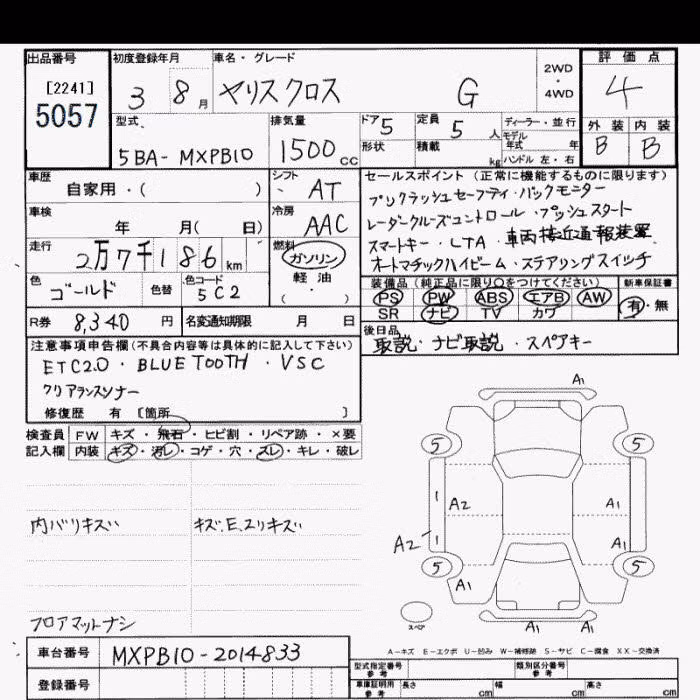 出品番号 初度登録年月 車名・グレード 2WD・4WD 評価点
[2241]
5057
3 8月 ヤリスクロス G 4
型式 排気量 ドア 5 定員 5人 ディーラー・並行 外装 内装
5BA-MXPB10 1500cc 形状 積載 kg モデル年式 年 B B
ハンドル 左・右
車歴 シフト セールスポイント(正常に機能するものに限ります)
自家用・( ) AT プリクラッシュセーフティ・バックモニター
車検 冷房 レーダークルーズコントロール・プッシュスタート
年 月( 日) AAC スマートキー・LTA・車両接近通報装置
走行 2万7千186km 燃料 ガソリン オートマチックハイビーム・ステアリングスイッチ
軽油
( ・ )
色 ゴールド 色替 色コード 5C2 装備品(純正品に限り○をつけてください) 新車保証書
PS PW ABS エアB AW 有・無
SR ナビ TV カワ
R券 8,340円 名変通知期限 月 日 後日品
取説・ナビ取説・スペアキー
注意事項申告欄(不具合内容等は具体的に記入して下さい)
ETC2.0・BLUETOOTH・VSC
クリアランスソナー
修復歴 有 [箇所 ]
検査員 FW キズ・飛石・ヒビ割・リペア跡・×要
記入欄 内装 キズ・汚レ・コゲ・穴・スレ・キレ・破レ
A1
5 5
1 A2 A1
A2 1 A1
5 5
A1
スペア A1 A1
内バリキズ キズ.E.エリキズ
フロアマットナシ
A-キズ E-エクボ U-凹み W-補修跡 S-サビ C-腐食 XX-交換済
車台番号 MXPB10-2014833
登録番号
型式指定番号 参考 類別区分番号 参考
車庫証明用 参考 長さ cm 幅 cm 高さ cm